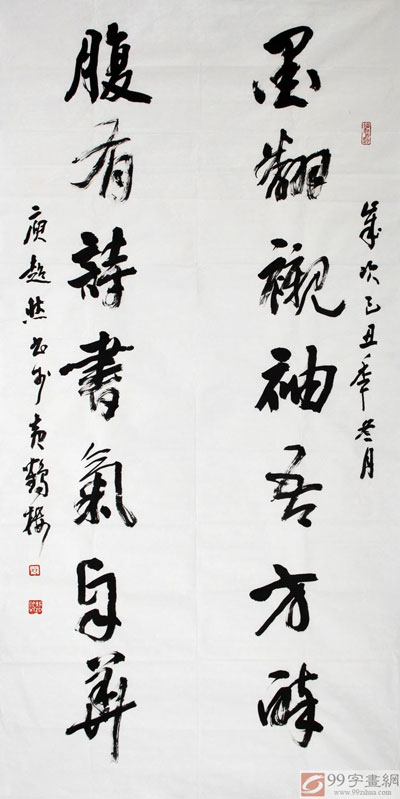 歲次己丑年冬月
墨翻襯袖吾方醉
腹有詩書氣自華
庾超然書於黃鶴樓
99字畫網
www.99zihua.com